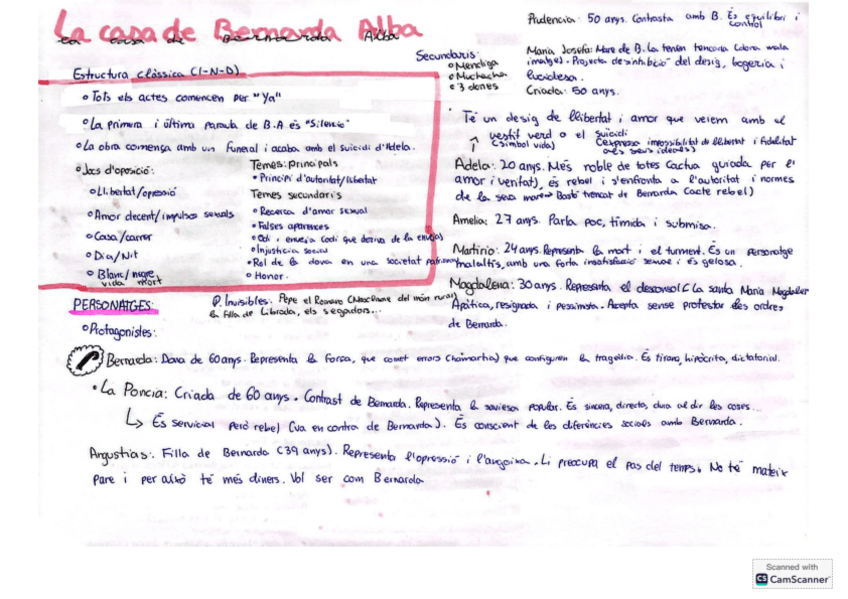 La casa de Bernarda Alba
Estructura clàssica (I-N-D)
Tots els actes comencen per "Ya"
La primera i última paraula de B.A és "Silencio"
La obra comença amb un funeral i acaba amb el suicidi d'Adela.
Jocs d'oposició:
Llibertat/opressió
Amor decent/impulsos sexuals
Casa/carrer
Dia/Nit
Blanc/negre
vida mort
Temes: principals
Principi d'autoritat/llibertat
Temes secundaris
Recerca d'amor sexual
Falses aparences
Odi i enveja (odi que deriva de la enveja)
Injustícia social
Rol de la dona en una societat patriarcal
Honor.
Secundaris:
Mendiga
Muchacha
3 dones
Prudencia: 50 anys. Contrasta amb B. És equilibri i
control
Maria Josefa: Mare de B. La tenen tancada (dona mala
imatge). Projecta desinhibició del desig, bogeria i
lucidesa.
Criada: 50 anys.
Té un desig de llibertat i amor que veiem amb el
vestit verd o el suicidi
(símbol vida) (expressa impossibilitat de llibertat i fidelitat
als seus ideals)
Adela: 20 anys. Més noble de totes (actua guiada per l'
amor i veritat), és rebel i s'enfronta a l'autoritat i normes
de la seva mare → Bastó trencat de Bernarda (acte rebel)
Amelia: 27 anys. Parla poc, tímida i submisa.
Martirio: 24 anys. Representa la mort i el turment. És un personatge
malaltís, amb una forta insatisfacció sexual i és gelosa.
Magdalena: 30 anys. Representa el desconsol (la santa Maria Magdalena)
Apàtica, resignada i pessimista. Accepta sense protestar les ordres
de Bernarda.
PERSONATGES:
P. Invisibles: Pepe el Romano (Masclisme del món rural)
la filla de Librada, els segadors...
Protagonistes:
Bernarda: Dona de 60 anys. Representa la força, que comet errors (hamartia) que configuren la tragèdia. És tirana, hipòcrita, dictatorial.
La Poncia: Criada de 60 anys. Contrast de Bernarda. Representa la saviesa popular. És sincera, directa, dura al dir les coses...
↳ És servicial però rebel (va en contra de Bernarda). És conscient de les diferències socials amb Bernarda.
Angustias: Filla de Bernarda (39 anys). Representa l'opressió i l'angoixa. Li preocupa el pas del temps. No té mateix
pare i per això té més diners. Vol ser com Bernarda
Scanned with
CS CamScanner